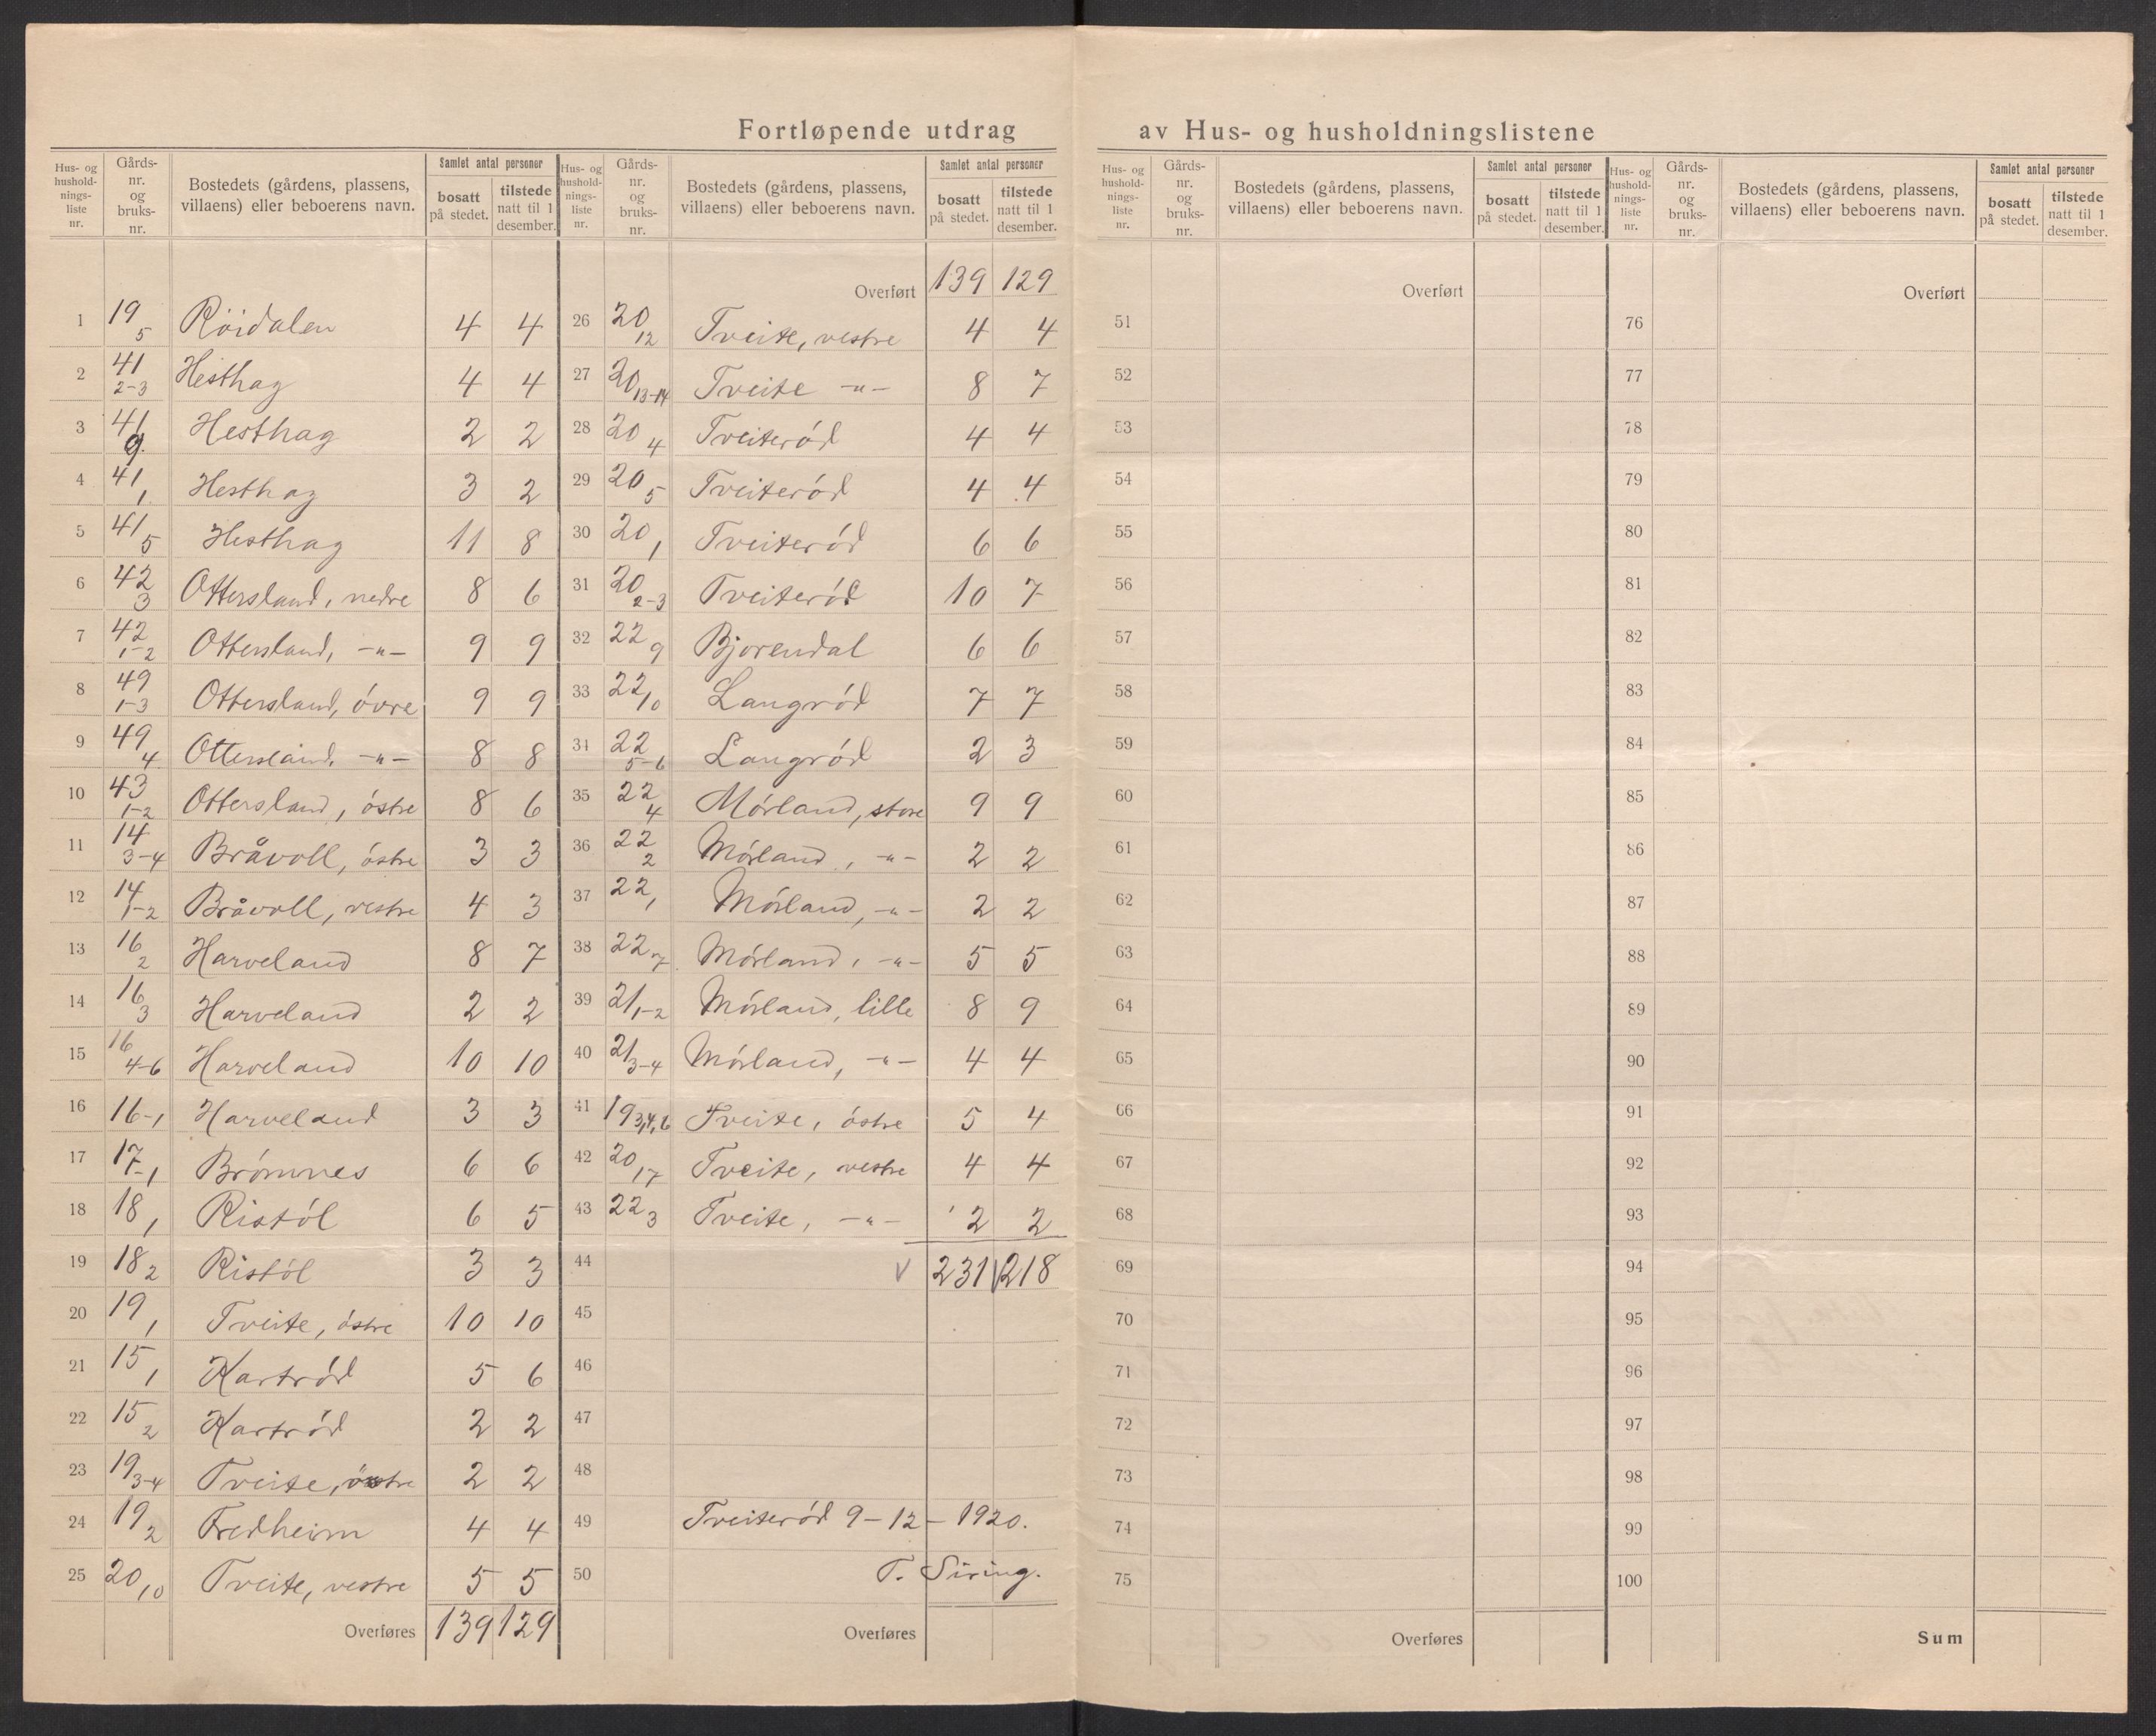 Fortløpende utdrag av Hus- og husholdningslistene
Hus- og husholdnings-liste nr. Gårds-nr. og bruks-nr. Bostedets (gårdens, plassens, villaens) eller beboerens navn. Samlet antal personer bosatt på stedet. tilstede natt til 1 desember.
1 19 5 Röidalen 4 4
2 41 2-3 Hesthag 4 4
3 41 9. Hesthag 2 2
4 41 1 Hesthag 3 2
5 41 5 Hesthag 11 8
6 42 3 Ottersland, nedre 8 6
7 42 1-2 Ottersland, -"- 9 9
8 49 1-3 Ottersland, óvre 9 9
9 49 4 Ottersland, -"- 8 8
10 43 1-2 Ottersland, óstre 8 6
11 14 3-4 Bråvoll, óstre 3 3
12 14 1-2 Bråvoll, vestre 4 3
13 16 2 Harveland 8 7
14 16 3 Harveland 2 2
15 16 4-6 Harveland 10 10
16 16-1 Harveland 3 3
17 17-1 Brómnes 6 6
18 18 1 Ristól 6 5
19 18 2 Ristól 3 3
20 19 1 Tveite, óstre 10 10
21 15 1 Kartród 5 6
22 15 2 Kartród 2 2
23 19 3-4 Tveite, óstre 2 2
24 19 2 Fredheim 4 4
25 20 10 Tveite, vestre 5 5
Overføres 139 129
Hus- og hushold-nings-liste nr. Gårds-nr. og bruks-nr. Bostedets (gårdens, plassens, villaens) eller beboerens navn. Samlet antal personer bosatt på stedet. tilstede natt til 1 desember.
Overført 139 129
26 20 12 Tveite, vestre 4 4
27 20 13-14 Tveite -"- 8 7
28 20 4 Tveiteród 4 4
29 20 5 Tveiteród 4 4
30 20 1 Tveiteród 6 6
31 20 2-3 Tveiteród 10 7
32 22 9 Bjorendal 6 6
33 22 10 Langród 7 7
34 22 5-6 Langród 2 3
35 22 4 Mórland, store 9 9
36 22 2 Mórland, -"- 2 2
37 22 1 Mórland, -"- 2 2
38 22 7 Mórland, -"- 5 5
39 21 1-2 Mórland, lille 8 9
40 21 3-4 Mórland, -"- 4 4
41 19 3,4,6 Tveite, óstre 5 4
42 20 17 Tveite, vestre 4 4
43 22 3 Tveite, -"- 2 2
44 231 218
45
46
47
48
49 Tveiteród 9-12-1920.
50 T. Siring.
Overføres
Hus- og hushold-nings-liste nr. Gårds-nr. og bruks-nr. Bostedets (gårdens, plassens, villaens) eller beboerens navn. Samlet antal personer bosatt på stedet. tilstede natt til 1 desember.
Overført
51
52
53
54
55
56
57
58
59
60
61
62
63
64
65
66
67
68
69
70
71
72
73
74
75
Overføres
Hus- og hushold-nings-liste nr. Gårds-nr. og bruks-nr. Bostedets (gårdens, plassens, villaens) eller beboerens navn. Samlet antal personer bosatt på stedet. tilstede natt til 1 desember.
Overført
76
77
78
79
80
81
82
83
84
85
86
87
88
89
90
91
92
93
94
95
96
97
98
99
100
Sum